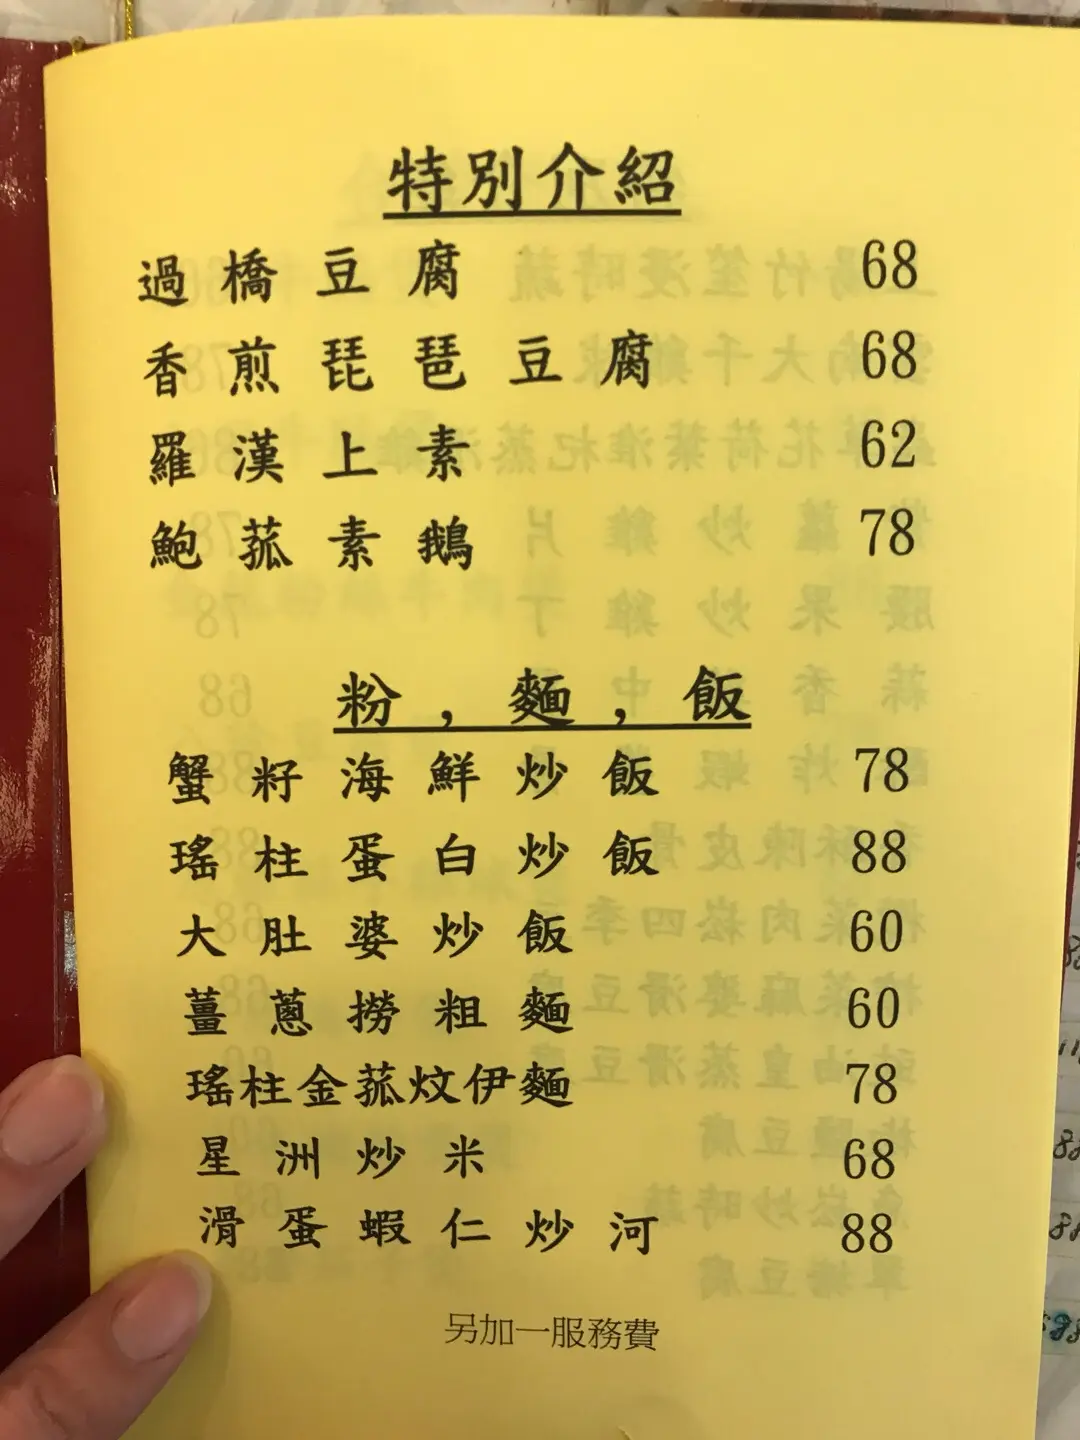 特別介紹
過橋豆腐 68
香煎琵琶豆腐 68
羅漢上素 62
鮑菰素鵝 78
粉，麵，飯
蟹籽海鮮炒飯 78
瑤柱蛋白炒飯 88
大肚婆炒飯 60
薑蔥撈粗麵 60
瑤柱金菰炆伊麵 78
星洲炒米 68
滑蛋蝦仁炒河 88
另加一服務費